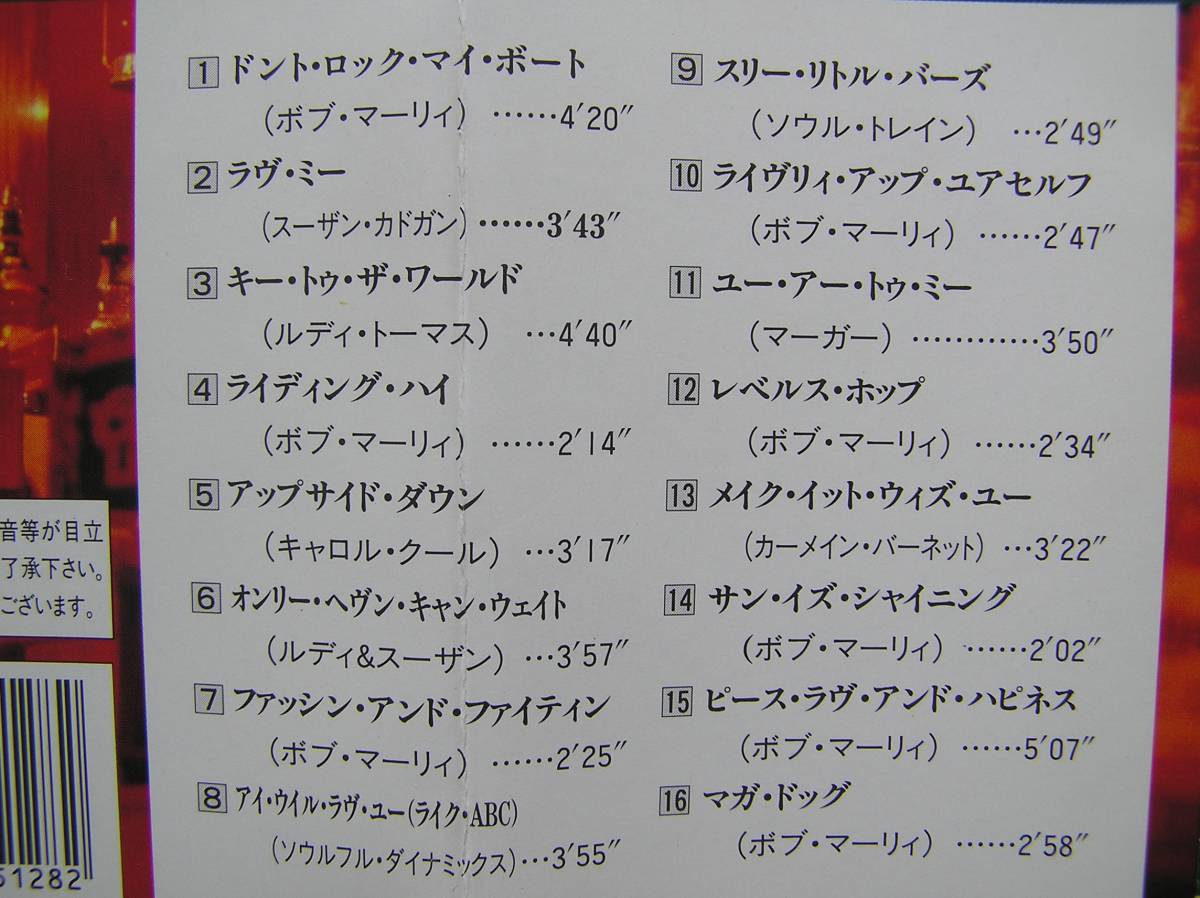 1 ドント・ロック・マイ・ボート
(ボブ・マーリィ) ……4′20″
2 ラヴ・ミー
(スーザン・カドガン) ……3′43″
3 キー・トゥ・ザ・ワールド
(ルディ・トーマス) …4′40″
4 ライディング・ハイ
(ボブ・マーリィ) ……2′14″
5 アップサイド・ダウン
(キャロル・クール) …3′17″
6 オンリー・ヘヴン・キャン・ウェイト
(ルディ&スーザン) …3′57″
7 ファッシン・アンド・ファイティン
(ボブ・マーリィ) ……2′25″
8 アイ・ウイル・ラヴ・ユー(ライク・ABC)
(ソウルフル・ダイナミックス)…3′55″
9 スリー・リトル・バーズ
(ソウル・トレイン) …2′49″
10 ライヴリィ・アップ・ユアセルフ
(ボブ・マーリィ) ……2′47″
11 ユー・アー・トゥ・ミー
(マーガー) …………3′50″
12 レベルス・ホップ
(ボブ・マーリィ) ……2′34″
13 メイク・イット・ウィズ・ユー
(カーメイン・バーネット) …3′22″
14 サン・イズ・シャイニング
(ボブ・マーリィ) ……2′02″
15 ピース・ラヴ・アンド・ハピネス
(ボブ・マーリィ) ……5′07″
16 マガ・ドッグ
(ボブ・マーリィ) ……2′58″
音等が目立
了承下さい。
ございます。
51282